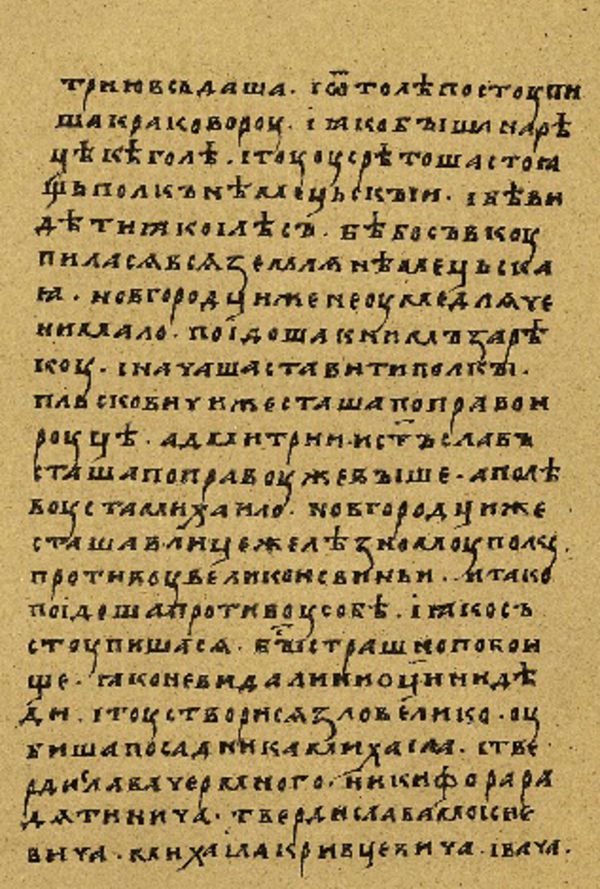 трии всѣдаша · і ѿтолѣ постоупи
ша к раковороу · і ꙗко быша на рѣ
цѣ кѣголѣ · і тоу оусрѣтоша стоꙗ
щь полкъ нѣмецьскыи · і бѣ ви
дѣти ꙗко і лѣсъ · бѣ бо съвкоу
пиласѧ всѧ землѧ нѣмецьска
ꙗ · новгородци же не оумедлѧче
ни мало · поідоша к нимъ за рѣ
коу · і начаша ставити полкы ·
пльсковичи же сташа по правои
роуцѣ · а дмитрии и ст҃ъславъ
сташа по правоу же выше · а по лѣ
воу ста михаило · новгородци же
сташа в лице желѣзномоу полку
противоу великои свиньи · и тако
поідоша противоу собѣ · і ꙗко съ
стоупишасѧ · бы страшно побои
ще · ꙗко не видали ни оци ни дѣ
ди · і тоу створисѧ зло велико · оу
биша посадника михаіла · і тве
рдислава чермного · никифора ра
дѧтинича · твердислава моісие
вича · михаіла кривцевича · івача ·